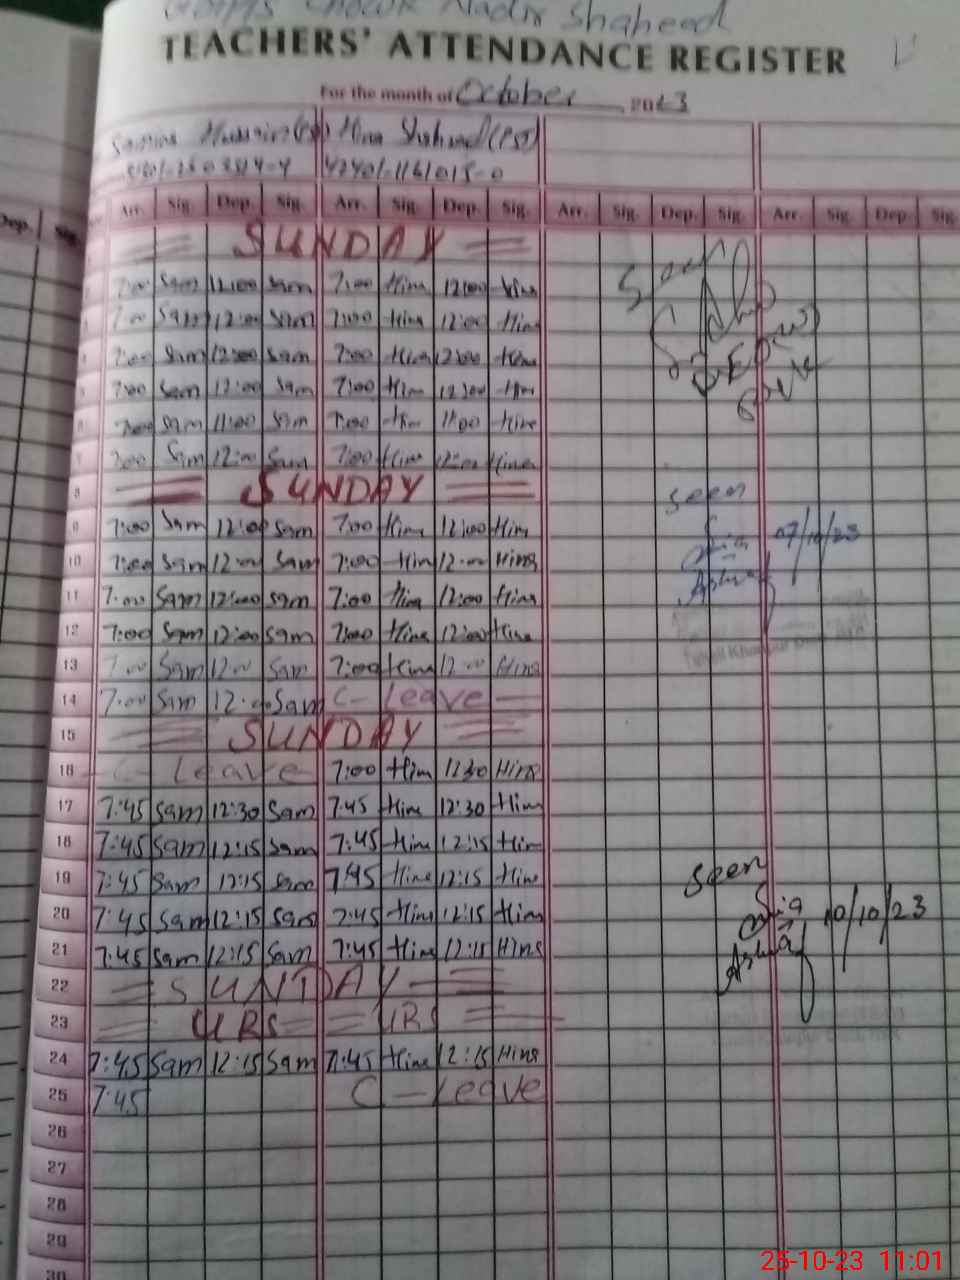 Chowk Nadir Shaheed
TEACHERS' ATTENDANCE REGISTER
For the month of October 2023
Hina Shaheed (PST)
42401-1161015-0
Dep. Sig. Arr. Sig. Dep. Sig. Arr. Sig. Dep. Sig. Arr. Sig. Dep. Sig. Arr. Sig. Dep. Sig.
SUNDAY
7:00 Sam 12:00 Sam 7:00 Hina 12:00 Hina
7:00 Sam 12:00 Sam 7:00 Hina 12:00 Hina
7:00 Sam 12:00 Sam 7:00 Hina 12:00 Hina
7:00 Sam 12:00 Sam 7:00 Hina 12:00 Hina
7:00 Sam 11:00 Sam 7:00 Hina 11:00 Hina
7:00 Sam 12:00 Sam 7:00 Hina 12:00 Hina
8 SUNDAY seen
9 7:00 Sam 12:00 Sam 7:00 Hina 12:00 Hina 07/10/23
10 7:00 Sam 12:00 Sam 7:00 Hina 12:00 Hina
11 7:00 Sam 12:00 Sam 7:00 Hina 12:00 Hina
12 7:00 Sam 12:00 Sam 7:00 Hina 12:00 Hina
13 7:00 Sam 12:00 Sam 7:00 Hina 12:00 Hina
14 7:00 Sam 12:00 Sam C- Leave
15 SUNDAY
16 C- Leave 7:00 Hina 12:30 Hina
17 7:45 Sam 12:30 Sam 7:45 Hina 12:30 Hina
18 7:45 Sam 12:15 Sam 7:45 Hina 12:15 Hina
19 7:45 Sam 12:15 Sam 7:45 Hina 12:15 Hina seen
20 7:45 Sam 12:15 Sam 7:45 Hina 12:15 Hina 10/10/23
21 7:45 Sam 12:15 Sam 7:45 Hina 12:15 Hina
22 SUNDAY
23 URS URS
24 7:45 Sam 12:15 Sam 7:45 Hina 12:15 Hina
25 7:45 C- Leave
26
27
28
29
30
25-10-23 11:01